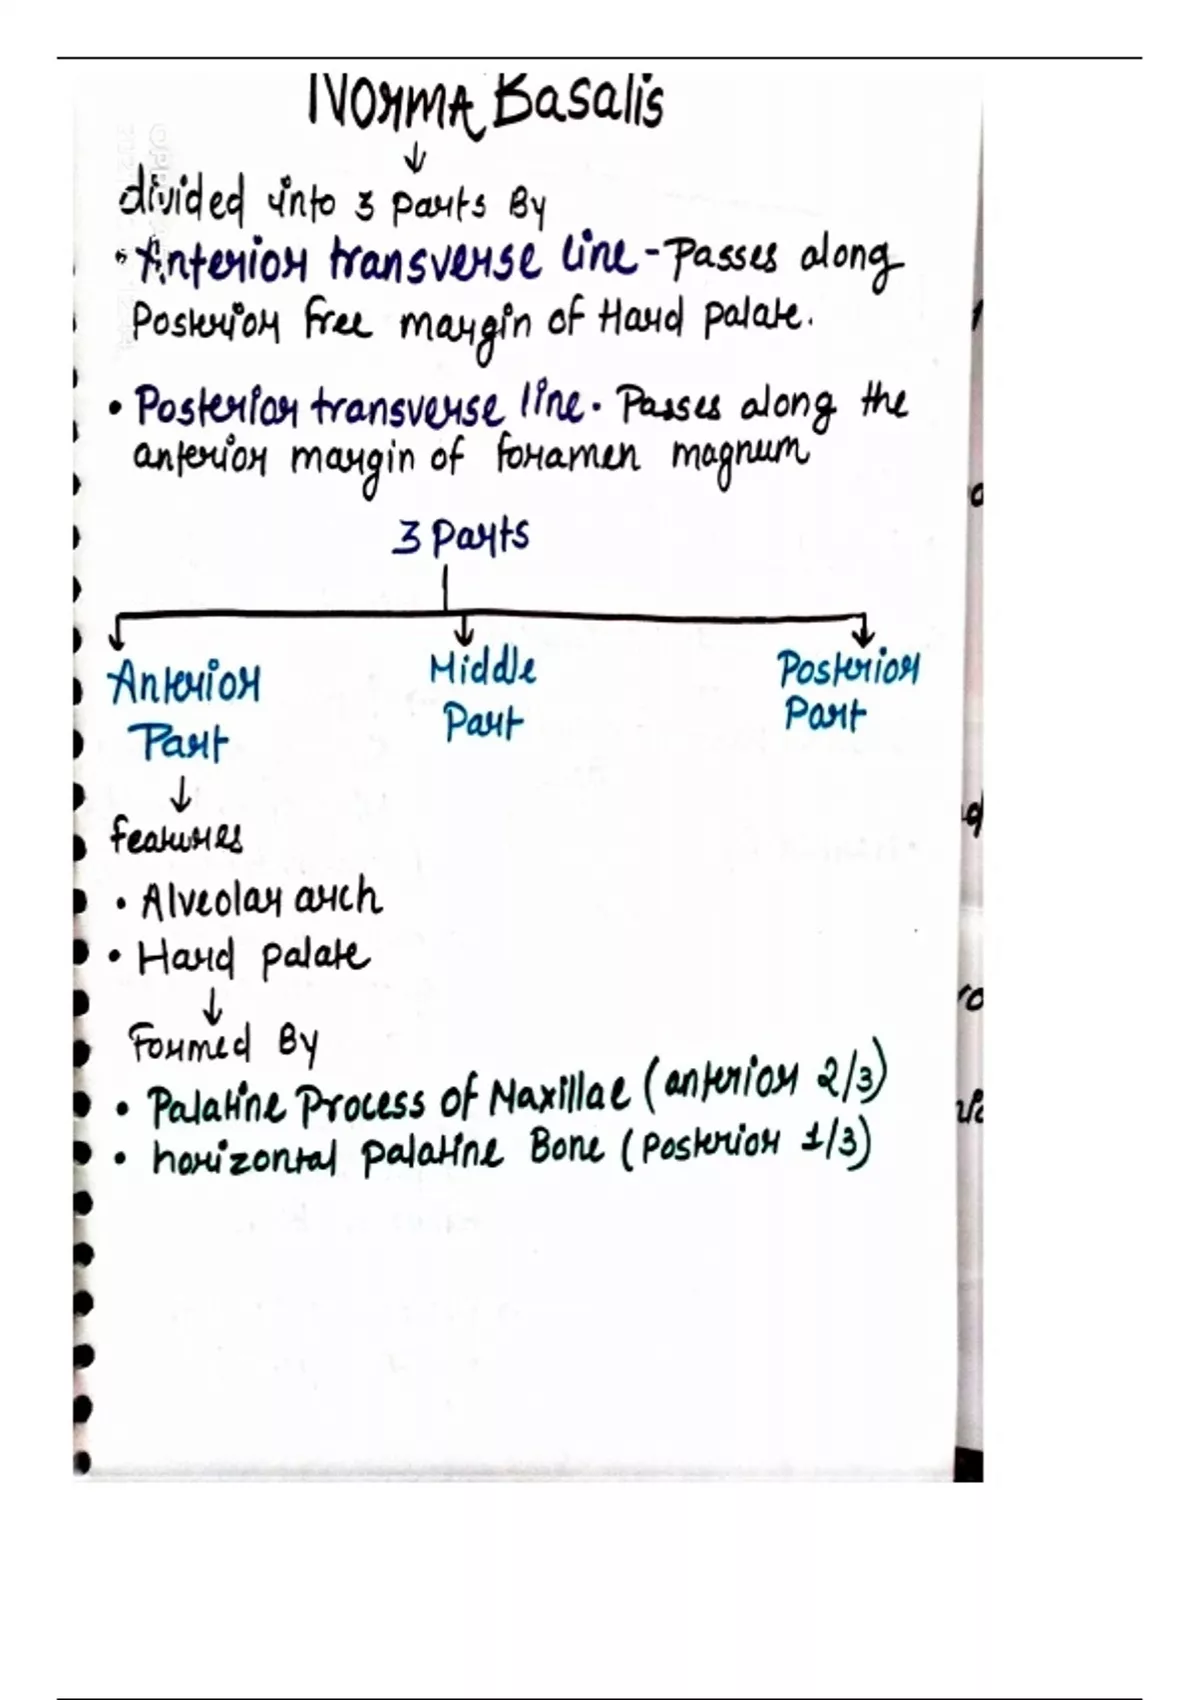 Norma Basalis
↓
divided into 3 Parts By
• Anterior transverse line - Passes along
Posterior free margin of Hard palate.
• Posterior transverse line. Passes along the
anterior margin of foramen magnum
3 Parts
Anterior Middle Posterior
Part Part Part
↓
features
• Alveolar arch
• Hard palate
↓
Formed By
• Palatine Process of Maxillae (anterior 2/3)
• horizontal palatine Bone (Posterior 1/3)